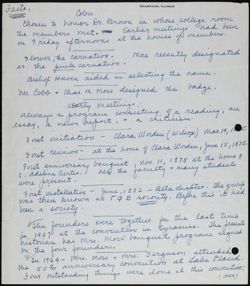 CHAMPAIGN, ILLINOIS
Facts.
Colors
Chosen to honor Dr. Brown in whose college room
the members met. Earlier meetings had been
on Friday afternoons at the houses of members.
Flower, the carnation. More recently designated
as the pink carnation.
Beulah Hawes aided in selecting the name.
Mr. Cobb - Chas. E. Moss designed the badge.
Early meetings.
Always a program consisting of a reading, an
essay, a news report & a criticism
First initiation - Clara Worden (Wilcox) Mar. 19,
First reunion - at the home of Clara Worden, June 15, 1875.
First anniversary banquet, Nov. 11, 1875 at the home of
E. Adeline Curtis. All the faculty & many students
were present.
First installation - June, 1882 - Beta chapter. The group
was then known as ΓΦΒ society. Before this it had
been a society.
The founders were together for the last time
in 1907 at the convention in Syracuse. The present
historian has Mrs. Moss' banquet program signed
by the four founders.
In 1924 - Mrs. Moss & Mrs. Ferguson attended
the 50th anniversary convention at Lake Placid.
Four outstanding things were done at this convention.
(over)